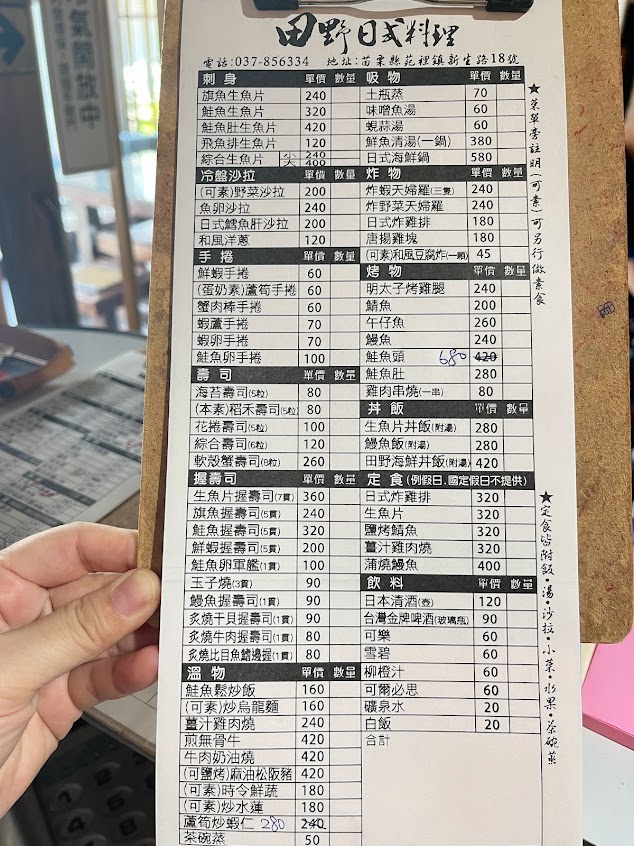 氣開放中
田野日式料理
電話:037-856334 地址:苗栗縣苑裡鎮新生路18號
刺身 單價 數量
旗魚生魚片 240
鮭魚生魚片 320
鮭魚肚生魚片 420
飛魚排生魚片 120
綜合生魚片 大 400
冷盤沙拉 單價 數量
(可素)野菜沙拉 200
魚卵沙拉 240
日式鱈魚肝沙拉 200
和風洋蔥 120
手捲 單價 數量
鮮蝦手捲 60
(蛋奶素)蘆筍手捲 60
蟹肉棒手捲 60
蝦蘆手捲 70
蝦卵手捲 70
鮭魚卵手捲 100
壽司 單價 數量
海苔壽司(5粒) 80
(本素)稻禾壽司(5粒) 80
花捲壽司(5粒) 100
綜合壽司(6粒) 120
軟殼蟹壽司(8粒) 260
握壽司 單價 數量
生魚片握壽司(7貫) 360
旗魚握壽司(5貫) 240
鮭魚握壽司(5貫) 320
鮮蝦握壽司(5貫) 200
鮭魚卵軍艦(1貫) 100
玉子燒(3貫) 90
鰻魚握壽司(1貫) 90
炙燒干貝握壽司(1貫) 90
炙燒牛肉握壽司(1貫) 80
炙燒比目魚鰭邊握(1貫) 80
溫物 單價 數量
鮭魚鬆炒飯 160
(可素)炒烏龍麵 160
薑汁雞肉燒 240
煎無骨牛 420
牛肉奶油燒 420
(可鹽烤)麻油松阪豬 420
(可素)時令鮮蔬 180
(可素)炒水蓮 180
蘆筍炒蝦仁 280 240
茶碗蒸 50
吸物 單價 數量
土瓶蒸 70
味噌魚湯 60
蜆蒜湯 60
鮮魚清湯(一鍋) 380
日式海鮮鍋 580
炸物 單價 數量
炸蝦天婦羅(三隻) 240
炸野菜天婦羅 240
日式炸雞排 180
唐揚雞塊 180
(可素)和風豆腐炸(一顆) 45
烤物 單價 數量
明太子烤雞腿 240
鯖魚 200
午仔魚 260
鰻魚 240
鮭魚頭 680 420
鮭魚肚 280
雞肉串燒(一串) 80
丼飯 單價 數量
生魚片丼飯(附湯) 280
鰻魚飯(附湯) 280
田野海鮮丼飯(附湯) 420
定食(例假日、國定假日不提供)
日式炸雞排 320
生魚片 320
鹽烤鯖魚 320
薑汁雞肉燒 320
蒲燒鰻魚 400
飲料 單價 數量
日本清酒(壺) 120
台灣金牌啤酒(玻璃瓶) 90
可樂 60
雪碧 60
柳橙汁 60
可爾必思 60
礦泉水 20
白飯 20
合計
★菜單旁註明(可素)可另行做素食
★定食皆附飯·湯·沙拉·小菜·水果·茶碗蒸